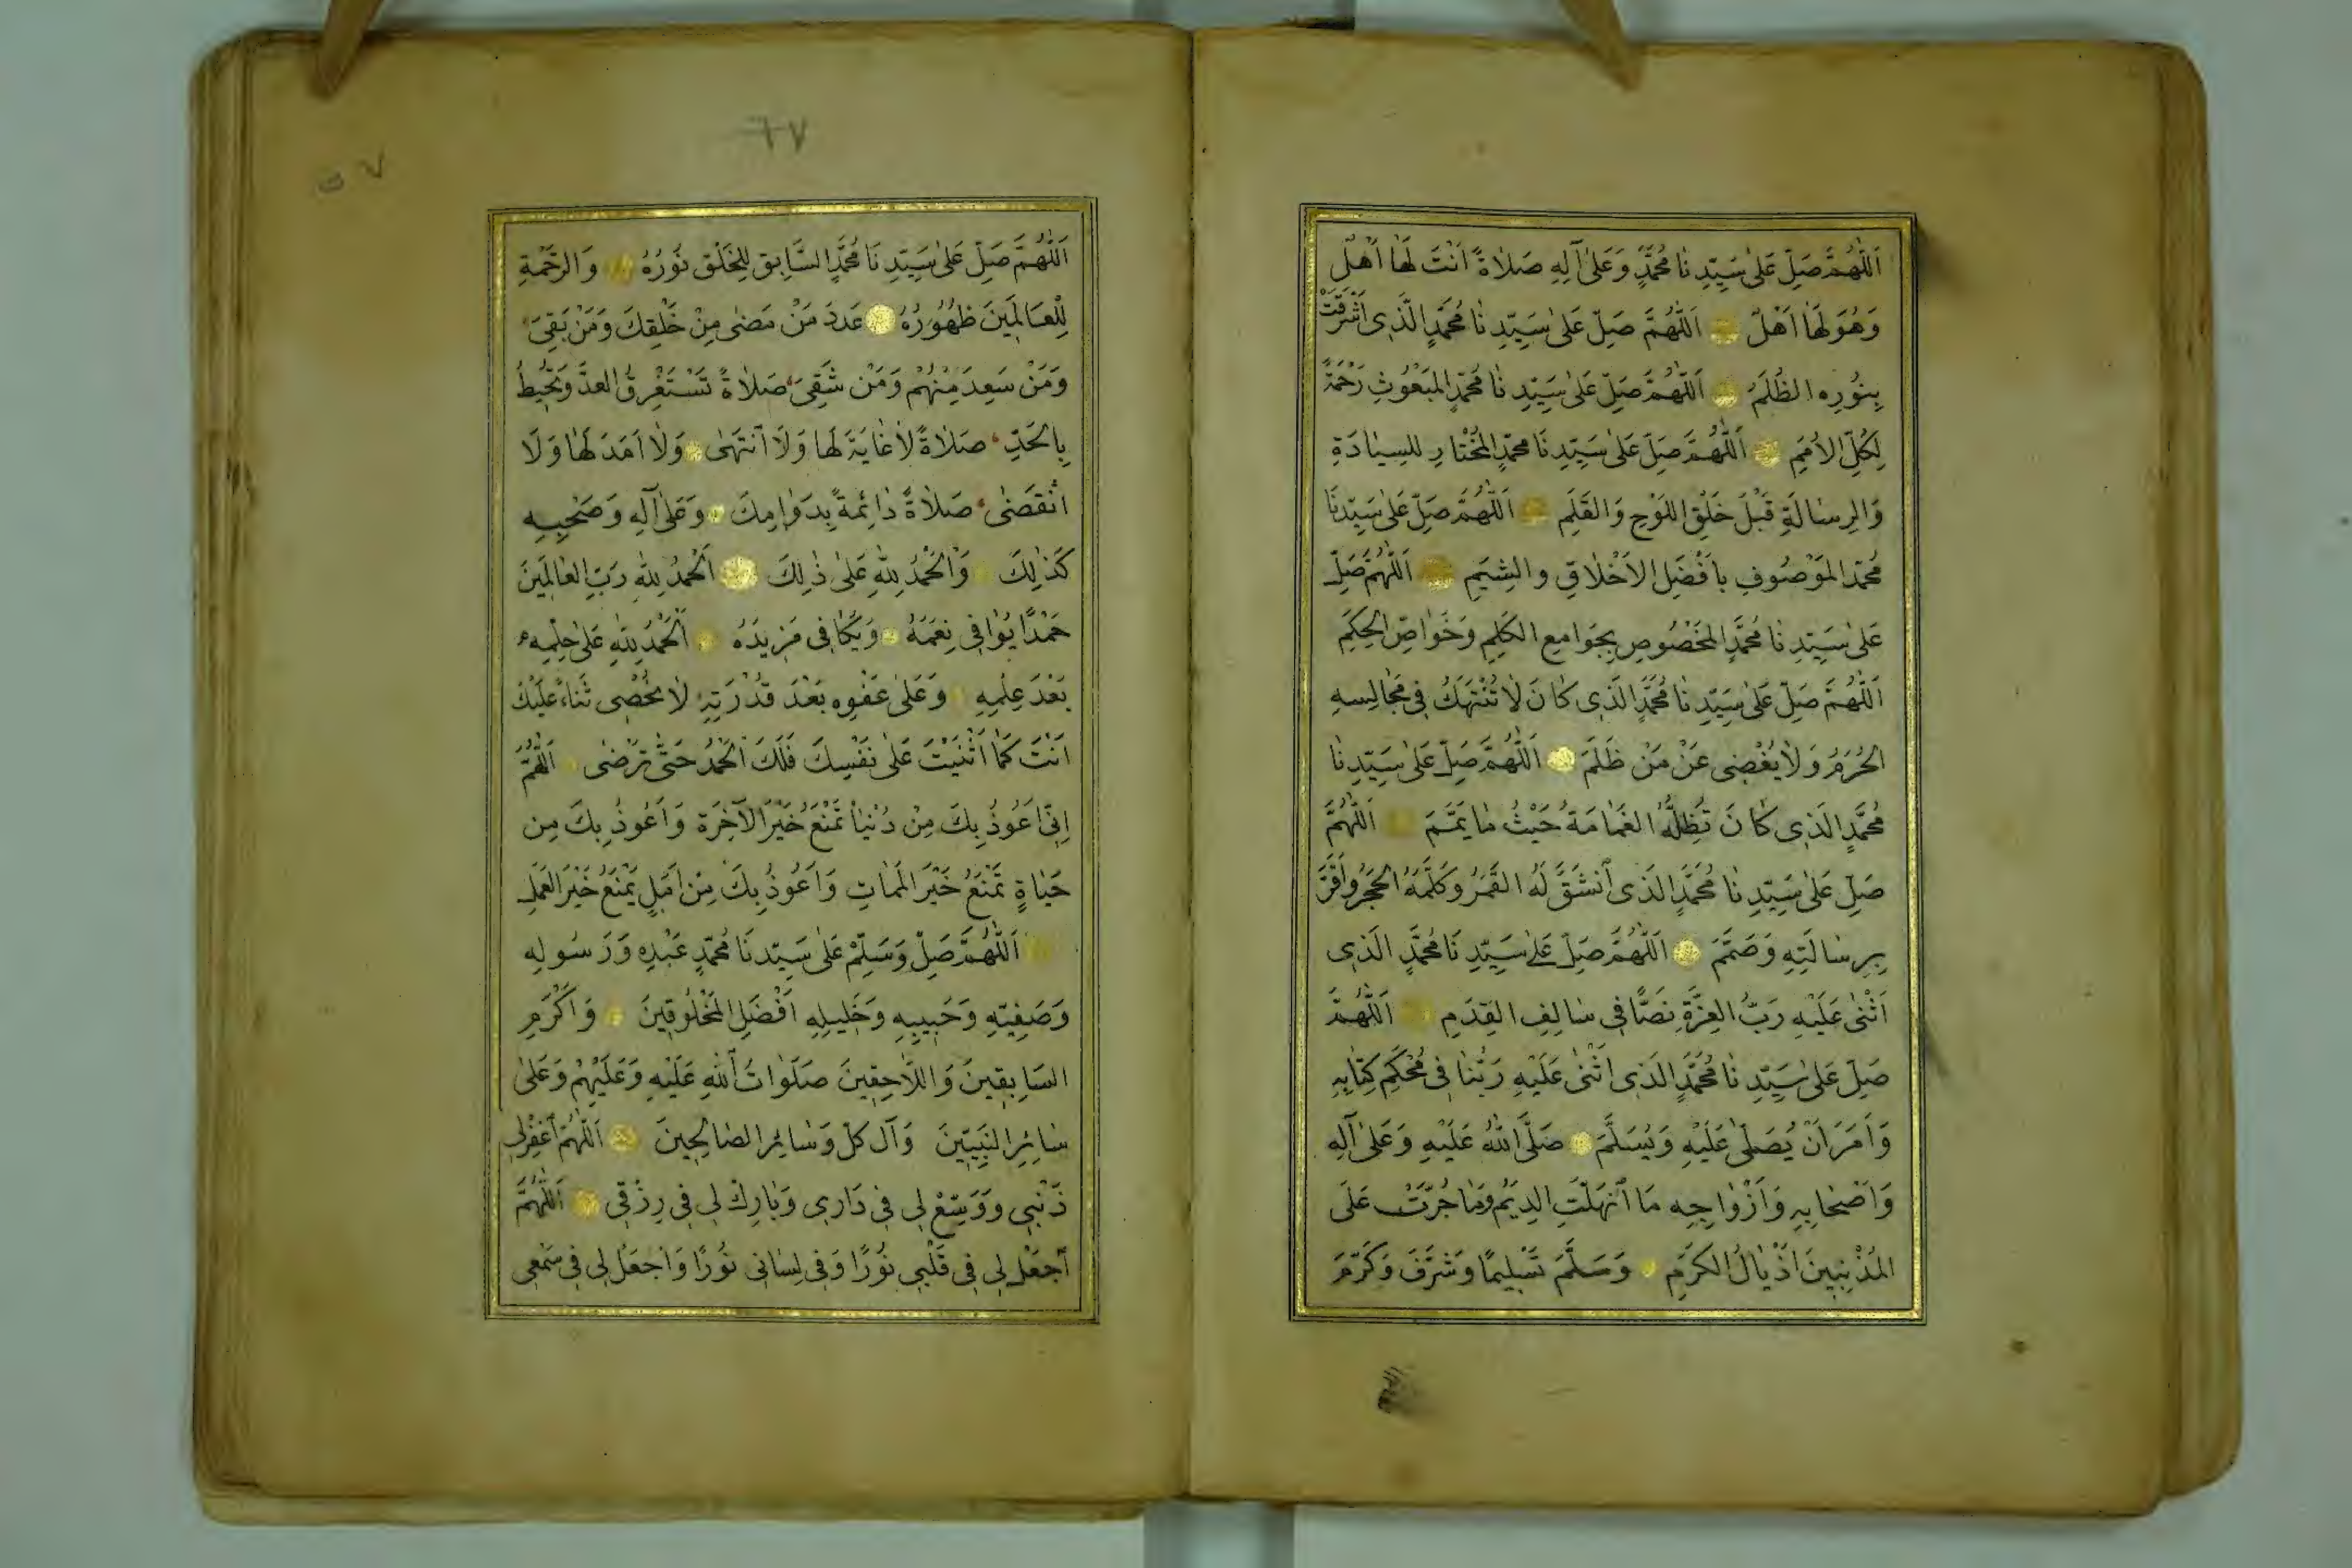 اَللّٰهُمَّ صَلِّ عَلىٰ سَيِّدِنَا مُحَمَّدٍ وَعَلىٰ آلِهِ صَلاٰةً اَنْتَ لَهَا اَهْلٌ
وَهُوَ لَهَا اَهْلٌ اَللّٰهُمَّ صَلِّ عَلىٰ سَيِّدِنَا مُحَمَّدٍ الَّذِى اَشْرَقَتْ
بِنُورِهِ الظُّلَمُ اَللّٰهُمَّ صَلِّ عَلىٰ سَيِّدِنَا مُحَمَّدٍ المَبْعُوثِ رَحْمَةً
لِكُلِّ الاُمَمِ اَللّٰهُمَّ صَلِّ عَلىٰ سَيِّدِنَا مُحَمَّدٍ المُخْتَارِ لِلسِيٰادَةِ
وَالرِسٰالَةِ قَبْلَ خَلْقِ اللَوْحِ وَالقَلَمِ اَللّٰهُمَّ صَلِّ عَلىٰ سَيِّدِنَا
مُحَمَّدٍ المَوْصُوفِ بِاَفْضَلِ الاَخْلاٰقِ وَالشِيَمِ اَللّٰهُمَّ صَلِّ
عَلىٰ سَيِّدِنَا مُحَمَّدٍ المَخْصُوصِ بِجَوَامِعِ الكَلِمِ وَخَوَاصِّ الحِكَمِ
اَللّٰهُمَّ صَلِّ عَلىٰ سَيِّدِنَا مُحَمَّدٍ الَّذِى كَانَ لاٰ تُنْتَهَكُ فِى مَجَالِسِهِ
الحُرَمُ وَلاٰ يُغْضِى عَنْ مَنْ ظَلَمَ اَللّٰهُمَّ صَلِّ عَلىٰ سَيِّدِنَا
مُحَمَّدٍ الَّذِى كَانَ تُظِلُّهُ الغَمٰامَةُ حَيْثُ مَا يَمَّمَ اَللّٰهُمَّ
صَلِّ عَلىٰ سَيِّدِنَا مُحَمَّدٍ الَّذِى اَنْشَقَّ لَهُ القَمَرُ وَكَلَّمَهُ الحَجَرُ وَاَقَرَّ
بِرِسٰالَتِهِ وَصَمَّمَ اَللّٰهُمَّ صَلِّ عَلىٰ سَيِّدِنَا مُحَمَّدٍ الَّذِى
اَثْنٰى عَلَيْهِ رَبُّ العِزَّةِ نَصًّا فِى سَالِفِ القِدَمِ اَللّٰهُمَّ
صَلِّ عَلىٰ سَيِّدِنَا مُحَمَّدٍ الَّذِى اَثْنٰى عَلَيْهِ رَبُّنَا فِى مُحْكَمِ كِتٰابِهِ
وَاَمَرَ اَنْ يُصَلّٰى عَلَيْهِ وَيُسَلَّمَ صَلَّى اللّٰهُ عَلَيْهِ وَعَلىٰ آلِهِ
وَاَصْحَابِهِ وَاَزْوٰاجِهِ مَا اَنْهَلَّتِ الدِيَمُ وَمَا جُرَّتْ عَلَى
المُذْنِبِينَ اَذْيٰالُ الكَرَمِ وَسَلَّمَ تَسْلِيمًا وَشَرَّفَ وَكَرَّمَ
٦٧
٥٧
اَللّٰهُمَّ صَلِّ عَلىٰ سَيِّدِنَا مُحَمَّدٍ السَّابِقِ لِلخَلْقِ نُورُهُ وَالرَحْمَةِ
لِلْعَالَمِينَ ظُهُورُهُ عَدَدَ مَنْ مَضىٰ مِنْ خَلْقِكَ وَمَنْ بَقِىَ
وَمَنْ سَعِدَ مِنْهُمْ وَمَنْ شَقِىَ صَلاٰةً تَسْتَغْرِقُ العَدَّ وَتُحِيطُ
بِالحَدِّ صَلاٰةً لاٰ غَايَةَ لَهَا وَلَا اَنْتَهىٰ وَلاٰ اَمَدَ لَهَا وَلَا
اَنْقَضىٰ صَلاٰةً دَائِمَةً بِدَوٰامِكَ وَعَلىٰ آلِهِ وَصَحْبِهِ
كَذٰلِكَ وَالْحَمْدُ لِلّٰهِ عَلىٰ ذٰلِكَ اَلْحَمْدُ لِلّٰهِ رَبِّ العَالَمِينَ
حَمْدًا يُوٰافِى نِعَمَهُ وَيُكَافِى مَزِيدَهُ اَلْحَمْدُ لِلّٰهِ عَلىٰ حِلْمِهِ
بَعْدَ عِلْمِهِ وَعَلىٰ عَفْوِهِ بَعْدَ قُدْرَتِهِ لاٰ نُحْصِى ثَنَاءً عَلَيْكَ
اَنْتَ كَمَا اَثْنَيْتَ عَلىٰ نَفْسِكَ فَلَكَ الحَمْدُ حَتّىٰ تَرْضىٰ اَللّٰهُمَّ
اِنِّى اَعُوذُ بِكَ مِنْ دُنْيٰا تَمْنَعُ خَيْرَ الآخِرَةِ وَاَعُوذُ بِكَ مِن
حَيٰاةٍ تَمْنَعُ خَيْرَ المَمَاتِ وَاَعُوذُ بِكَ مِنْ اَمَلٍ يَمْنَعُ خَيْرَ العَمَلِ
اَللّٰهُمَّ صَلِّ وَسَلِّمْ عَلىٰ سَيِّدِنَا مُحَمَّدٍ عَبْدِهِ وَرَسُولِهِ
وَصَفِيِّهِ وَحَبِيبِهِ وَخَلِيلِهِ اَفْضَلِ المَخْلُوقِينَ وَاَكْرَمِ
السَابِقِينَ وَاللاَحِقِينَ صَلَوٰاتُ اَللّٰهِ عَلَيْهِ وَعَلَيْهِمْ وَعَلىٰ
سٰائِرِ النَبِيِّينَ وَآلِ كُلٍّ وَسٰائِرِ الصَالِحِينَ اَللّٰهُمَّ اَغْفِرْ لِى
ذَنْبِى وَوَسِّعْ لِى فِى دَارِى وَبٰارِكْ لِى فِى رِزْقِى اَللّٰهُمَّ
اَجْعَلْ لِى فِى قَلْبِى نُورًا وَفِى لِسٰانِى نُورًا وَاَجْعَلْ لِى فِى سَمْعِى